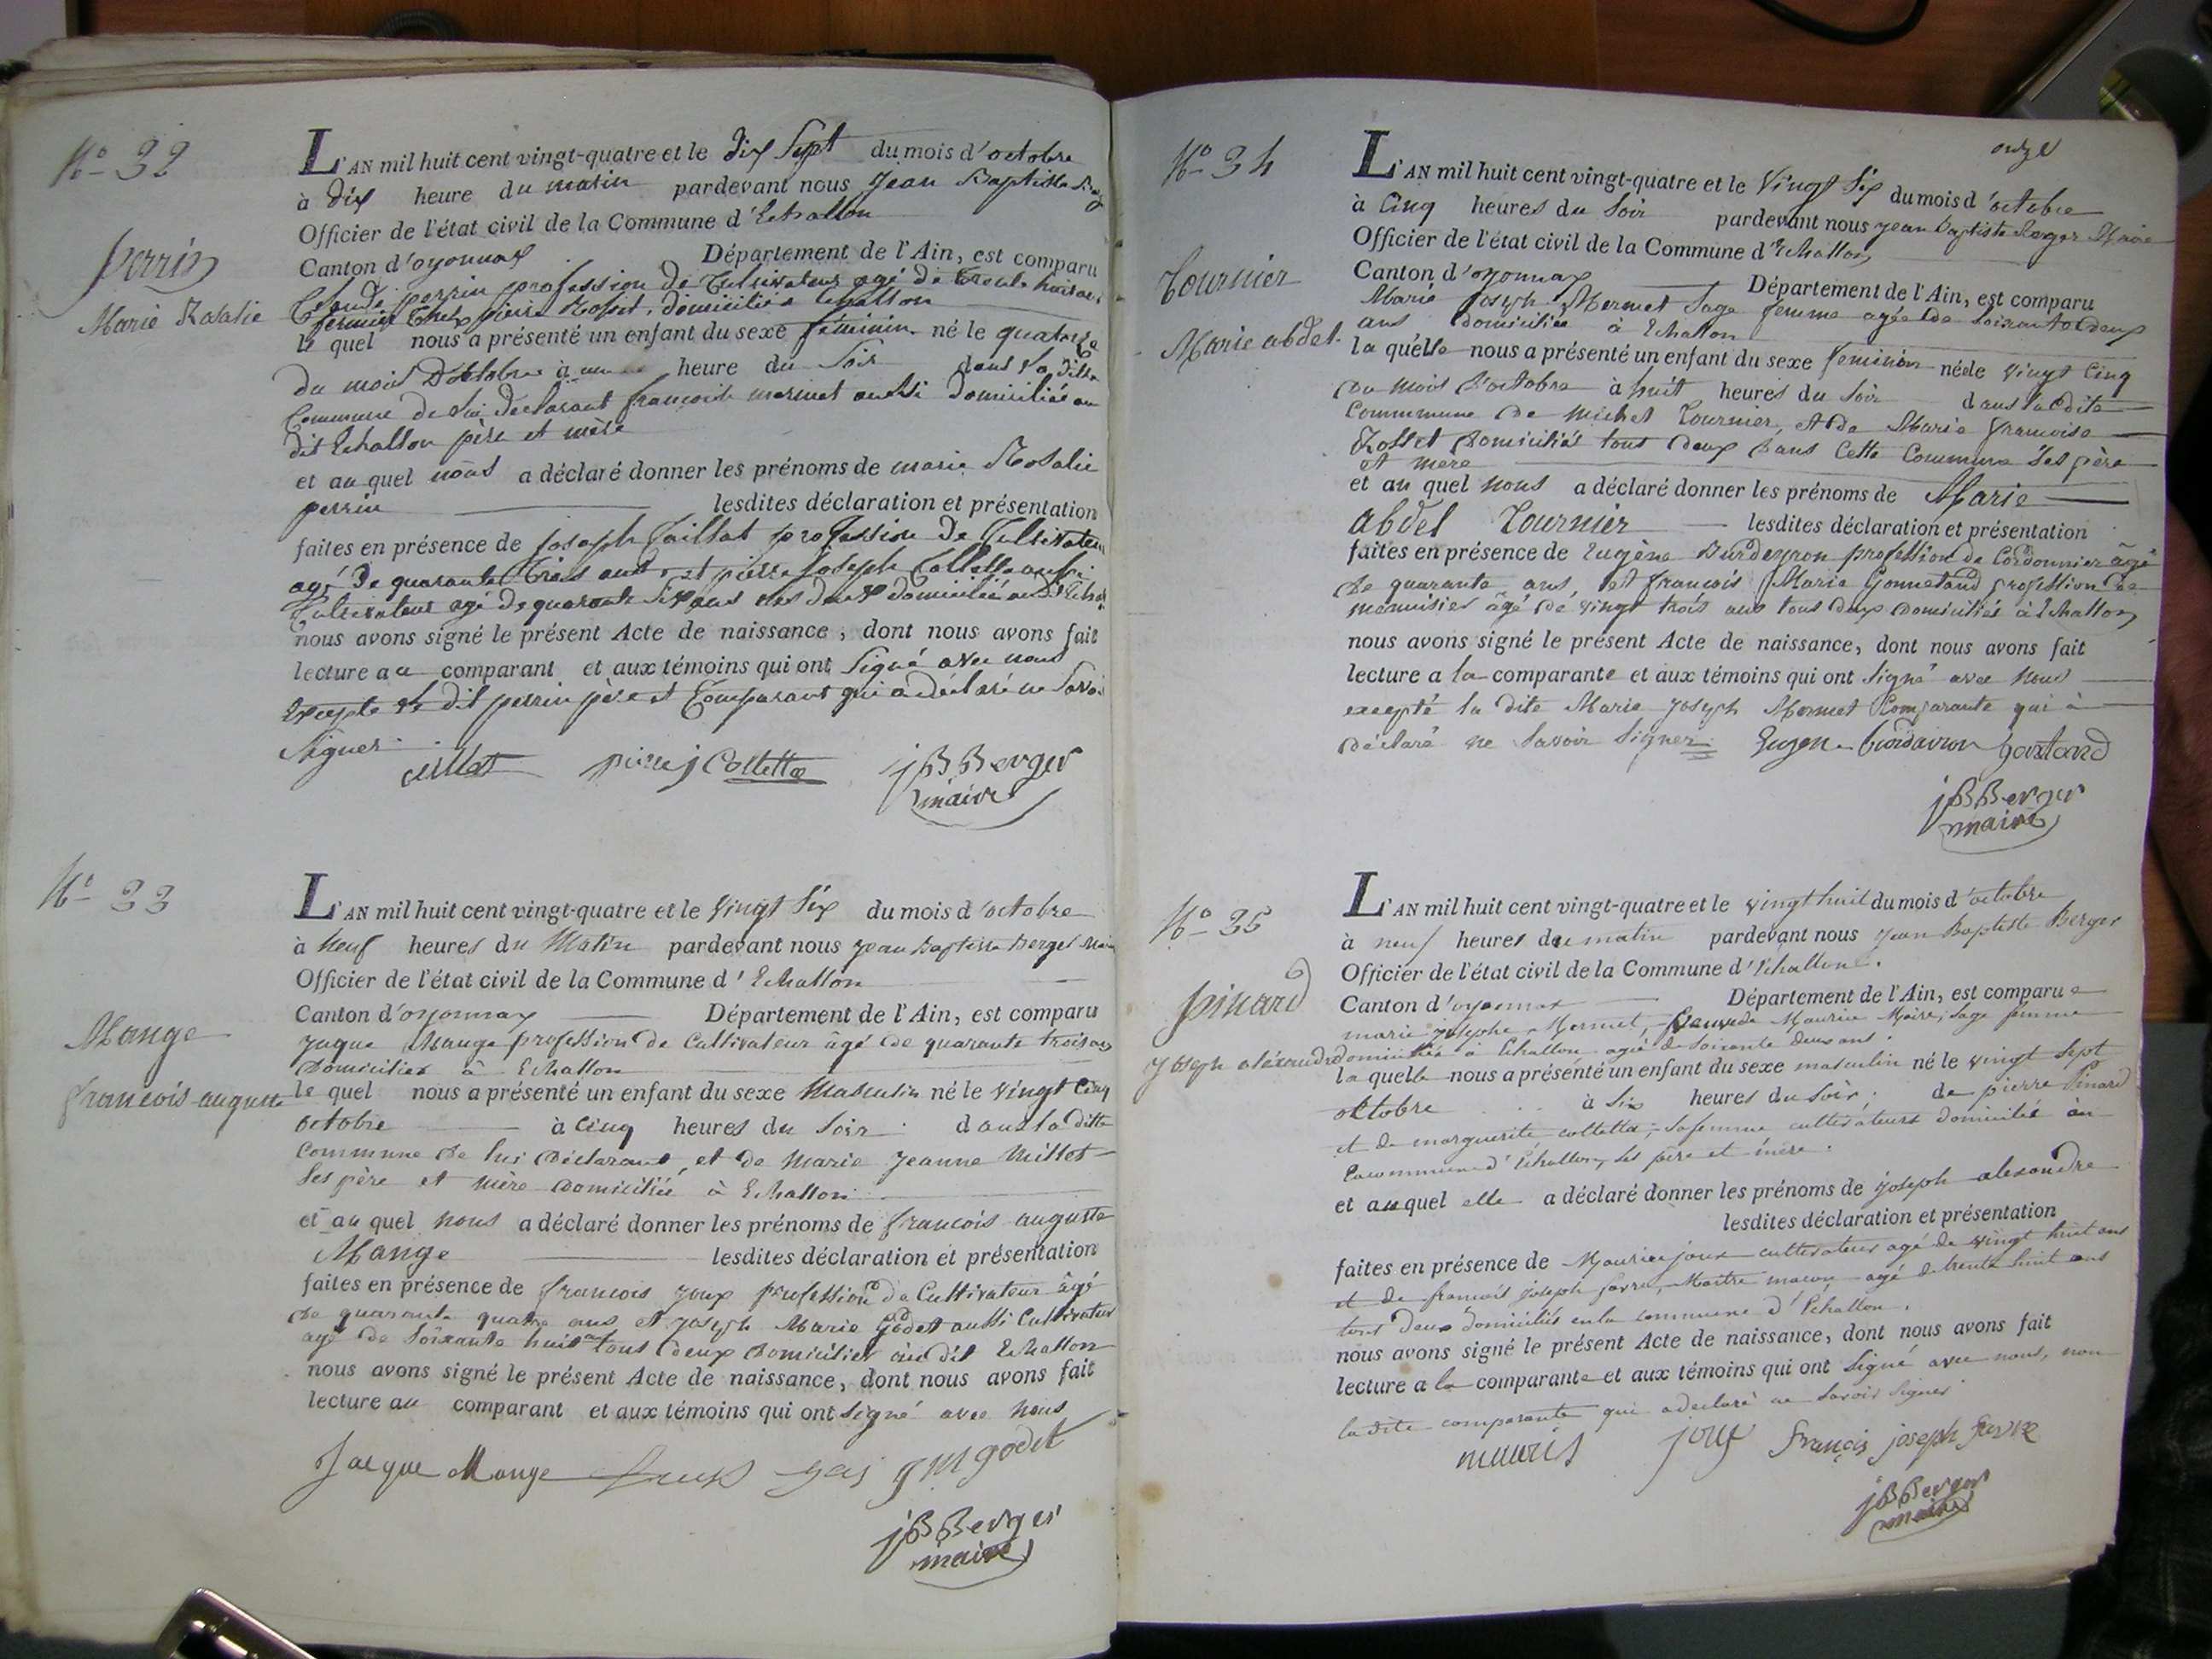 N° 32
Perrin
Marie Rosalie
L'AN mil huit cent vingt-quatre et le dix Sept du mois d'octobre
à dix heure du matin pardevant nous Jean Baptiste
Officier de l'état civil de la Commune d'Echallon
Canton d'oyonnax Département de l'Ain, est comparu
Claude perrin profession de Cultivateur agé de trente huit ans
fermier Chez pierre Rosset, domicilié a Echallon
le quel nous a présenté un enfant du sexe féminin né le quatorze
du mois D'octobre à une heure du Soir dans la ditte
Commune de lui déclarant françoise mermet aussi domiciliée au
dit Echallon père et mère
et au quel nous a déclaré donner les prénoms de marie Rosalie
perrin lesdites déclaration et présentation
faites en présence de joseph Caillat profession De Cultivateur
agé De quarante trois ans, et pierre joseph Collette aussi
Cultivateur agé De quarante Six ans tous deux domiciliés au dit
nous avons signé le présent Acte de naissance, dont nous avons fait
lecture au comparant et aux témoins qui ont Signé avec nous
Excepté le dit perrin père et Comparant qui a déclaré ne Savoir
Signer.
pierre j Collette jB Berger
maire
N° 33
Mange
francois auguste
L'AN mil huit cent vingt-quatre et le Vingt Six du mois d'octobre
à Neuf heures du Matin pardevant nous Jean Baptiste Berger Maire
Officier de l'état civil de la Commune d'Echallon
Canton d'oyonnax Département de l'Ain, est comparu
Jaque Mange profession de Cultivateur âgé de quarante trois ans
Domicilier à Echallon
le quel nous a présenté un enfant du sexe Masculin né le Vingt Cinq
octobre à Cinq heures du Soir dans la ditte
Commune de lui Déclarant, et de Marie Jeanne Millet
Ses père et mère domiciliée à Echallon
et au quel nous a déclaré donner les prénoms de francois auguste
Mange lesdites déclaration et présentation
faites en présence de francois Joux profession de Cultivateur âgé
de quarante quatre ans et Joseph Marie Godet aussi Cultivateur
agé de Soixante huit ans tous deux Domicilier au dit Echallon
nous avons signé le présent Acte de naissance, dont nous avons fait
lecture au comparant et aux témoins qui ont signé avec Nous
Jacque Mange j M godet
jB Berger
maire
onze
N° 34
Tournier
Marie abdel
L'AN mil huit cent vingt-quatre et le Vingt Six du mois d'octobre
à Cinq heures du Soir pardevant nous Jean Baptiste Berger Maire
Officier de l'état civil de la Commune d'Echallon
Canton d'oyonnax Département de l'Ain, est comparu
Marie Joseph Mermet Sage femme agée de Soixante deux
ans domiciliée à Echallon
la quelle nous a présenté un enfant du sexe feminin née le Vingt Cinq
du Mois d'octobre à huit heures du Soir dans la dite
Commmune de Michel Tournier, et de Marie francoise
Rosset Domiciliés tous deux Dans Cette Commune Ses père
et mere
et au quel Nous a déclaré donner les prénoms de Marie
abdel Tournier lesdites déclaration et présentation
faites en présence de Eugène Burdeyron profession de Cordonnier âgé
de quarante ans, et francois Marie Gonnetand profession de
menuisier âgé de vingt trois ans tous deux domiciliés à Echallon
nous avons signé le présent Acte de naissance, dont nous avons fait
lecture a la comparante et aux témoins qui ont Signé avec Nous
excepté la dite Marie Joseph Mermet Comparante qui à
déclaré ne Savoir Signer
jB Berger
maire
N° 35
pinard
Joseph aléxandre
L'AN mil huit cent vingt-quatre et le vingt huit du mois d'octobre
à neuf heures du matin pardevant nous Jean Baptiste Berger
Officier de l'état civil de la Commune d'Echallon.
Canton d'oyonnax Département de l'Ain, est comparue
marie josephe Mermet, veuve de Maurice Maire, Sage femme
domiciliée à Echallon agée de Soixante deux ans.
la quelle nous a présenté un enfant du sexe masculin né le vingt Sept
octobre à Six heures du Soir, de pierre Pinard
et de marguerite collette, Sa femme cultivateurs domiciliés en
la commune d'Echallon, Ses père et mère.
et auquel elle a déclaré donner les prénoms de joseph alexandre
lesdites déclaration et présentation
faites en présence de Maurice joux cultivateur agé de vingt huit ans
et de francois joseph favre, Maitre macon agé de trente huit ans
tous deux domiciliés en la commune d'Echallon.
nous avons signé le présent Acte de naissance, dont nous avons fait
lecture a la comparante et aux témoins qui ont Signé avec nous, non
la dite comparante qui a déclaré ne Savoir Signer
mauris joux françis joseph favre
jB Berger
maire